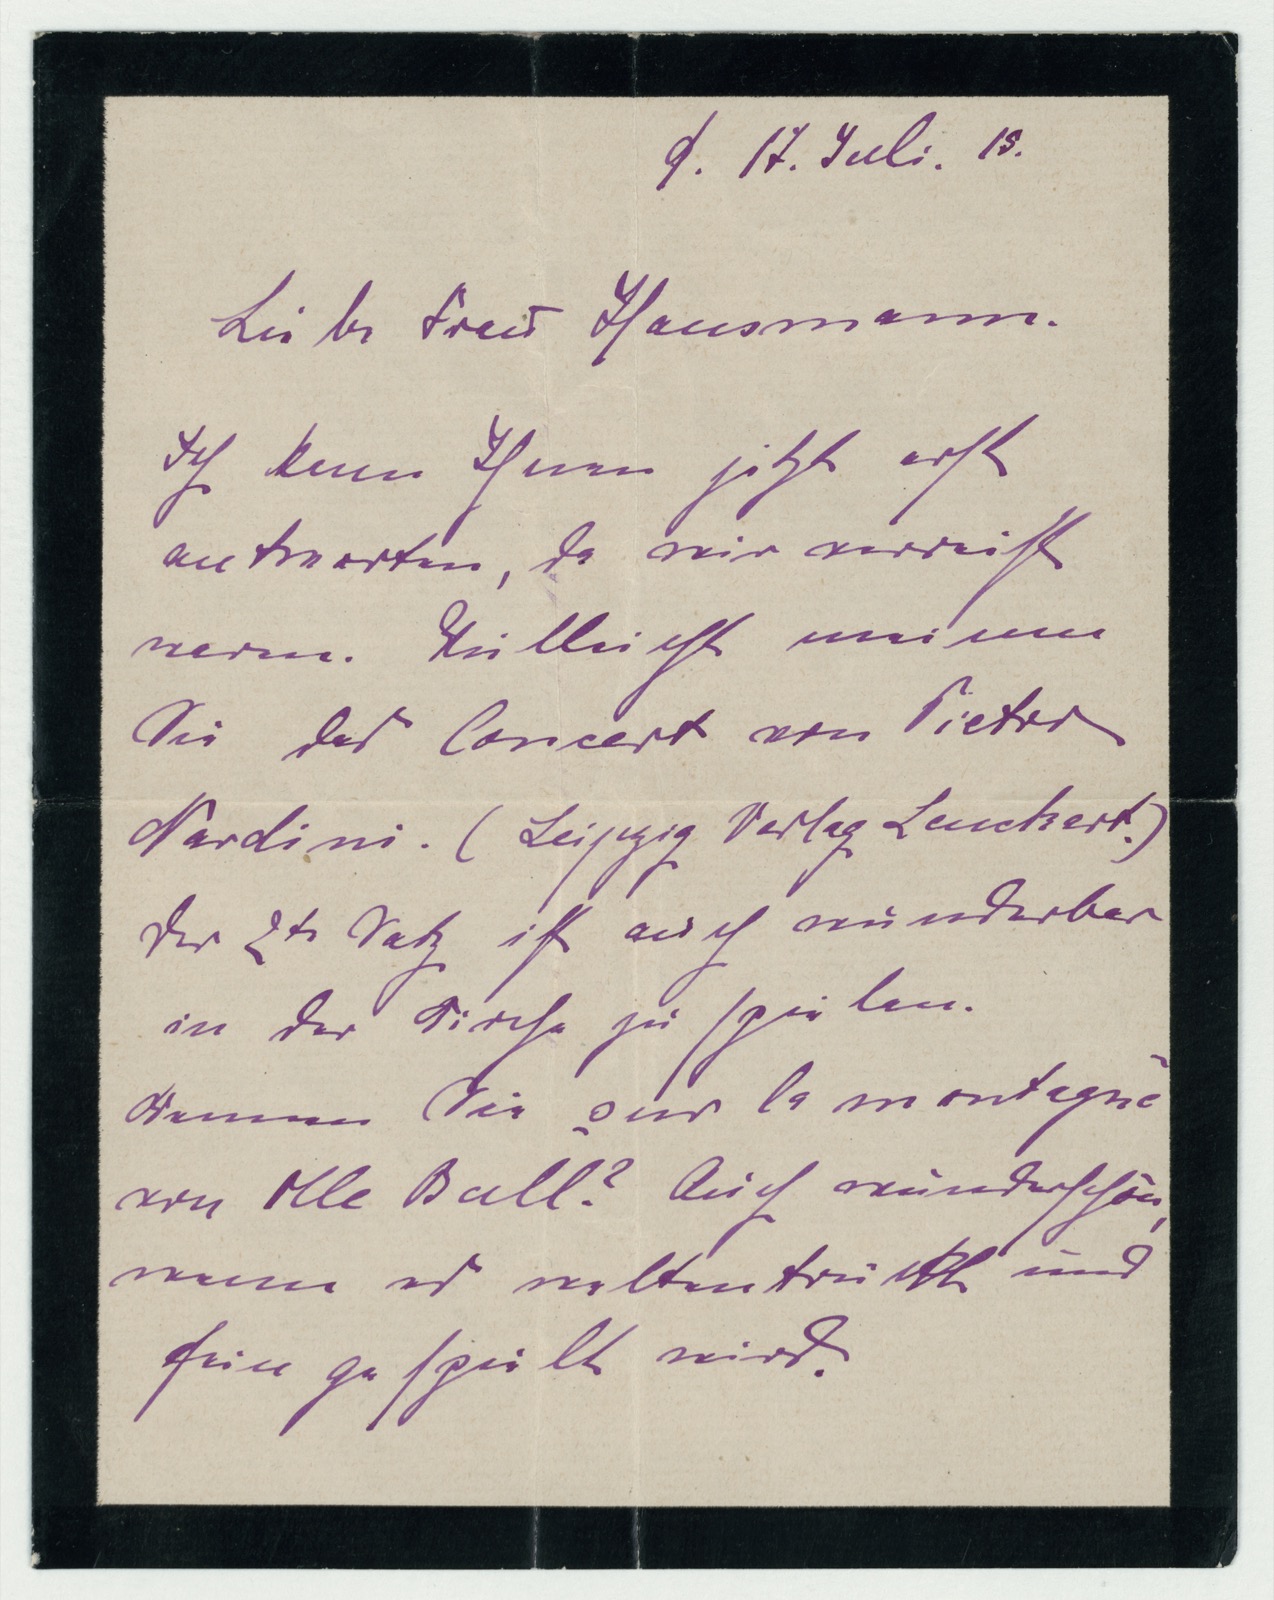 d. 17. Juli. 15.
Liebe Frau Hausmann.
Ich kann Ihnen jetzt erst
antworten, da wir verreist
waren. Vielleicht meinen
Sie das Concert von Pietro
Nardini. (Leipzig Verlag Leuckart.)
Der 2te Satz ist auch wunderbar
in der Kirche zu spielen.
Kennen Sie sur la montagne
von Olle Bull? Auch wunderschön,
wenn es weltentrückt und
fein gespielt wird.